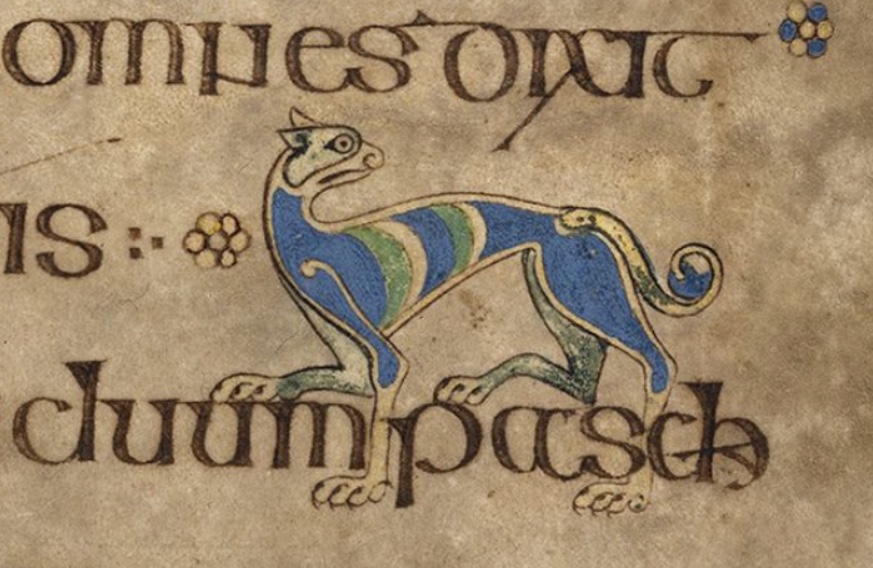 omnes dixit
is :·
duum pasch